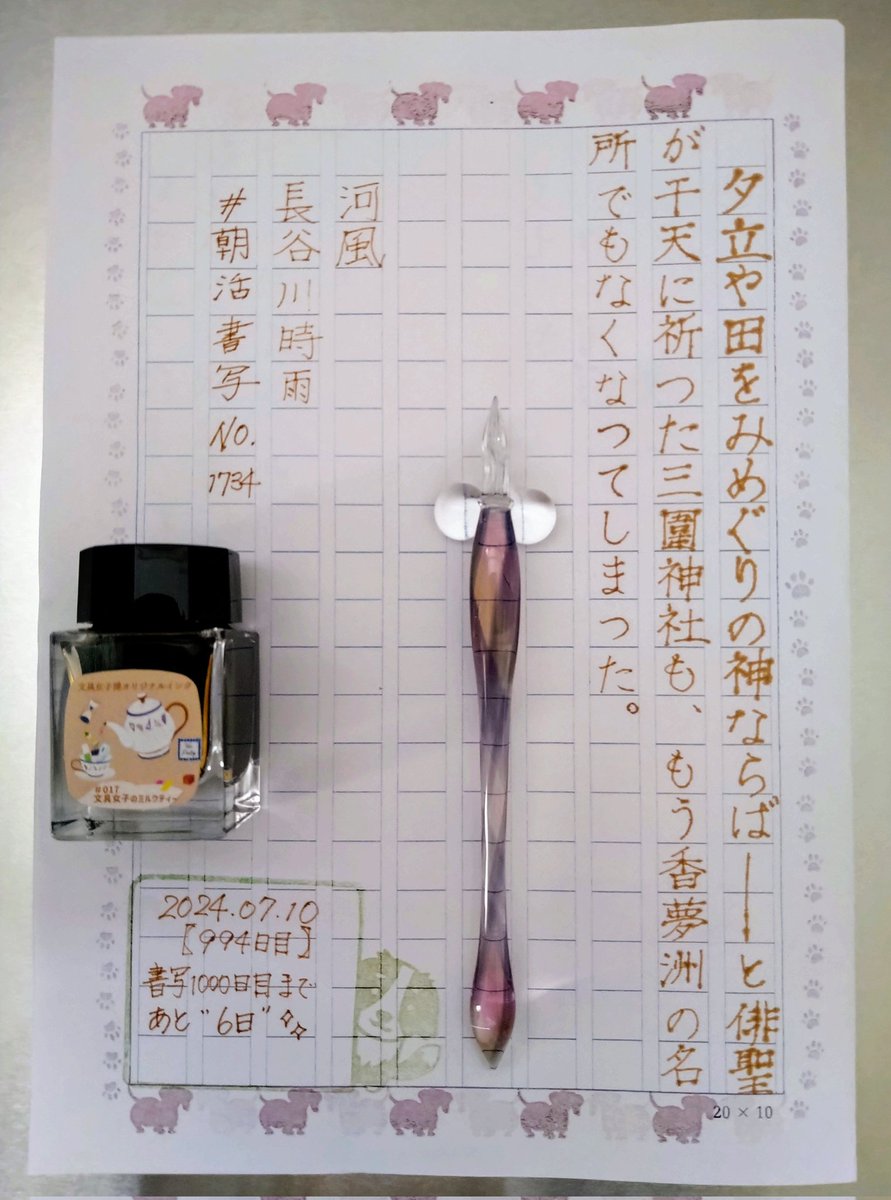 夕立や田をみめぐりの神ならば――と俳聖
が干天に祈つた三圍神社も、もう香夢洲の名
所でもなくなつてしまつた。
河風
長谷川時雨
#朝活書写
No.
1734
文具女子博オリジナルインク
#017
文具女子のミルクティー
2024.07.10
[994日目]
書写1000日目まで
あと"6日"
20 × 10